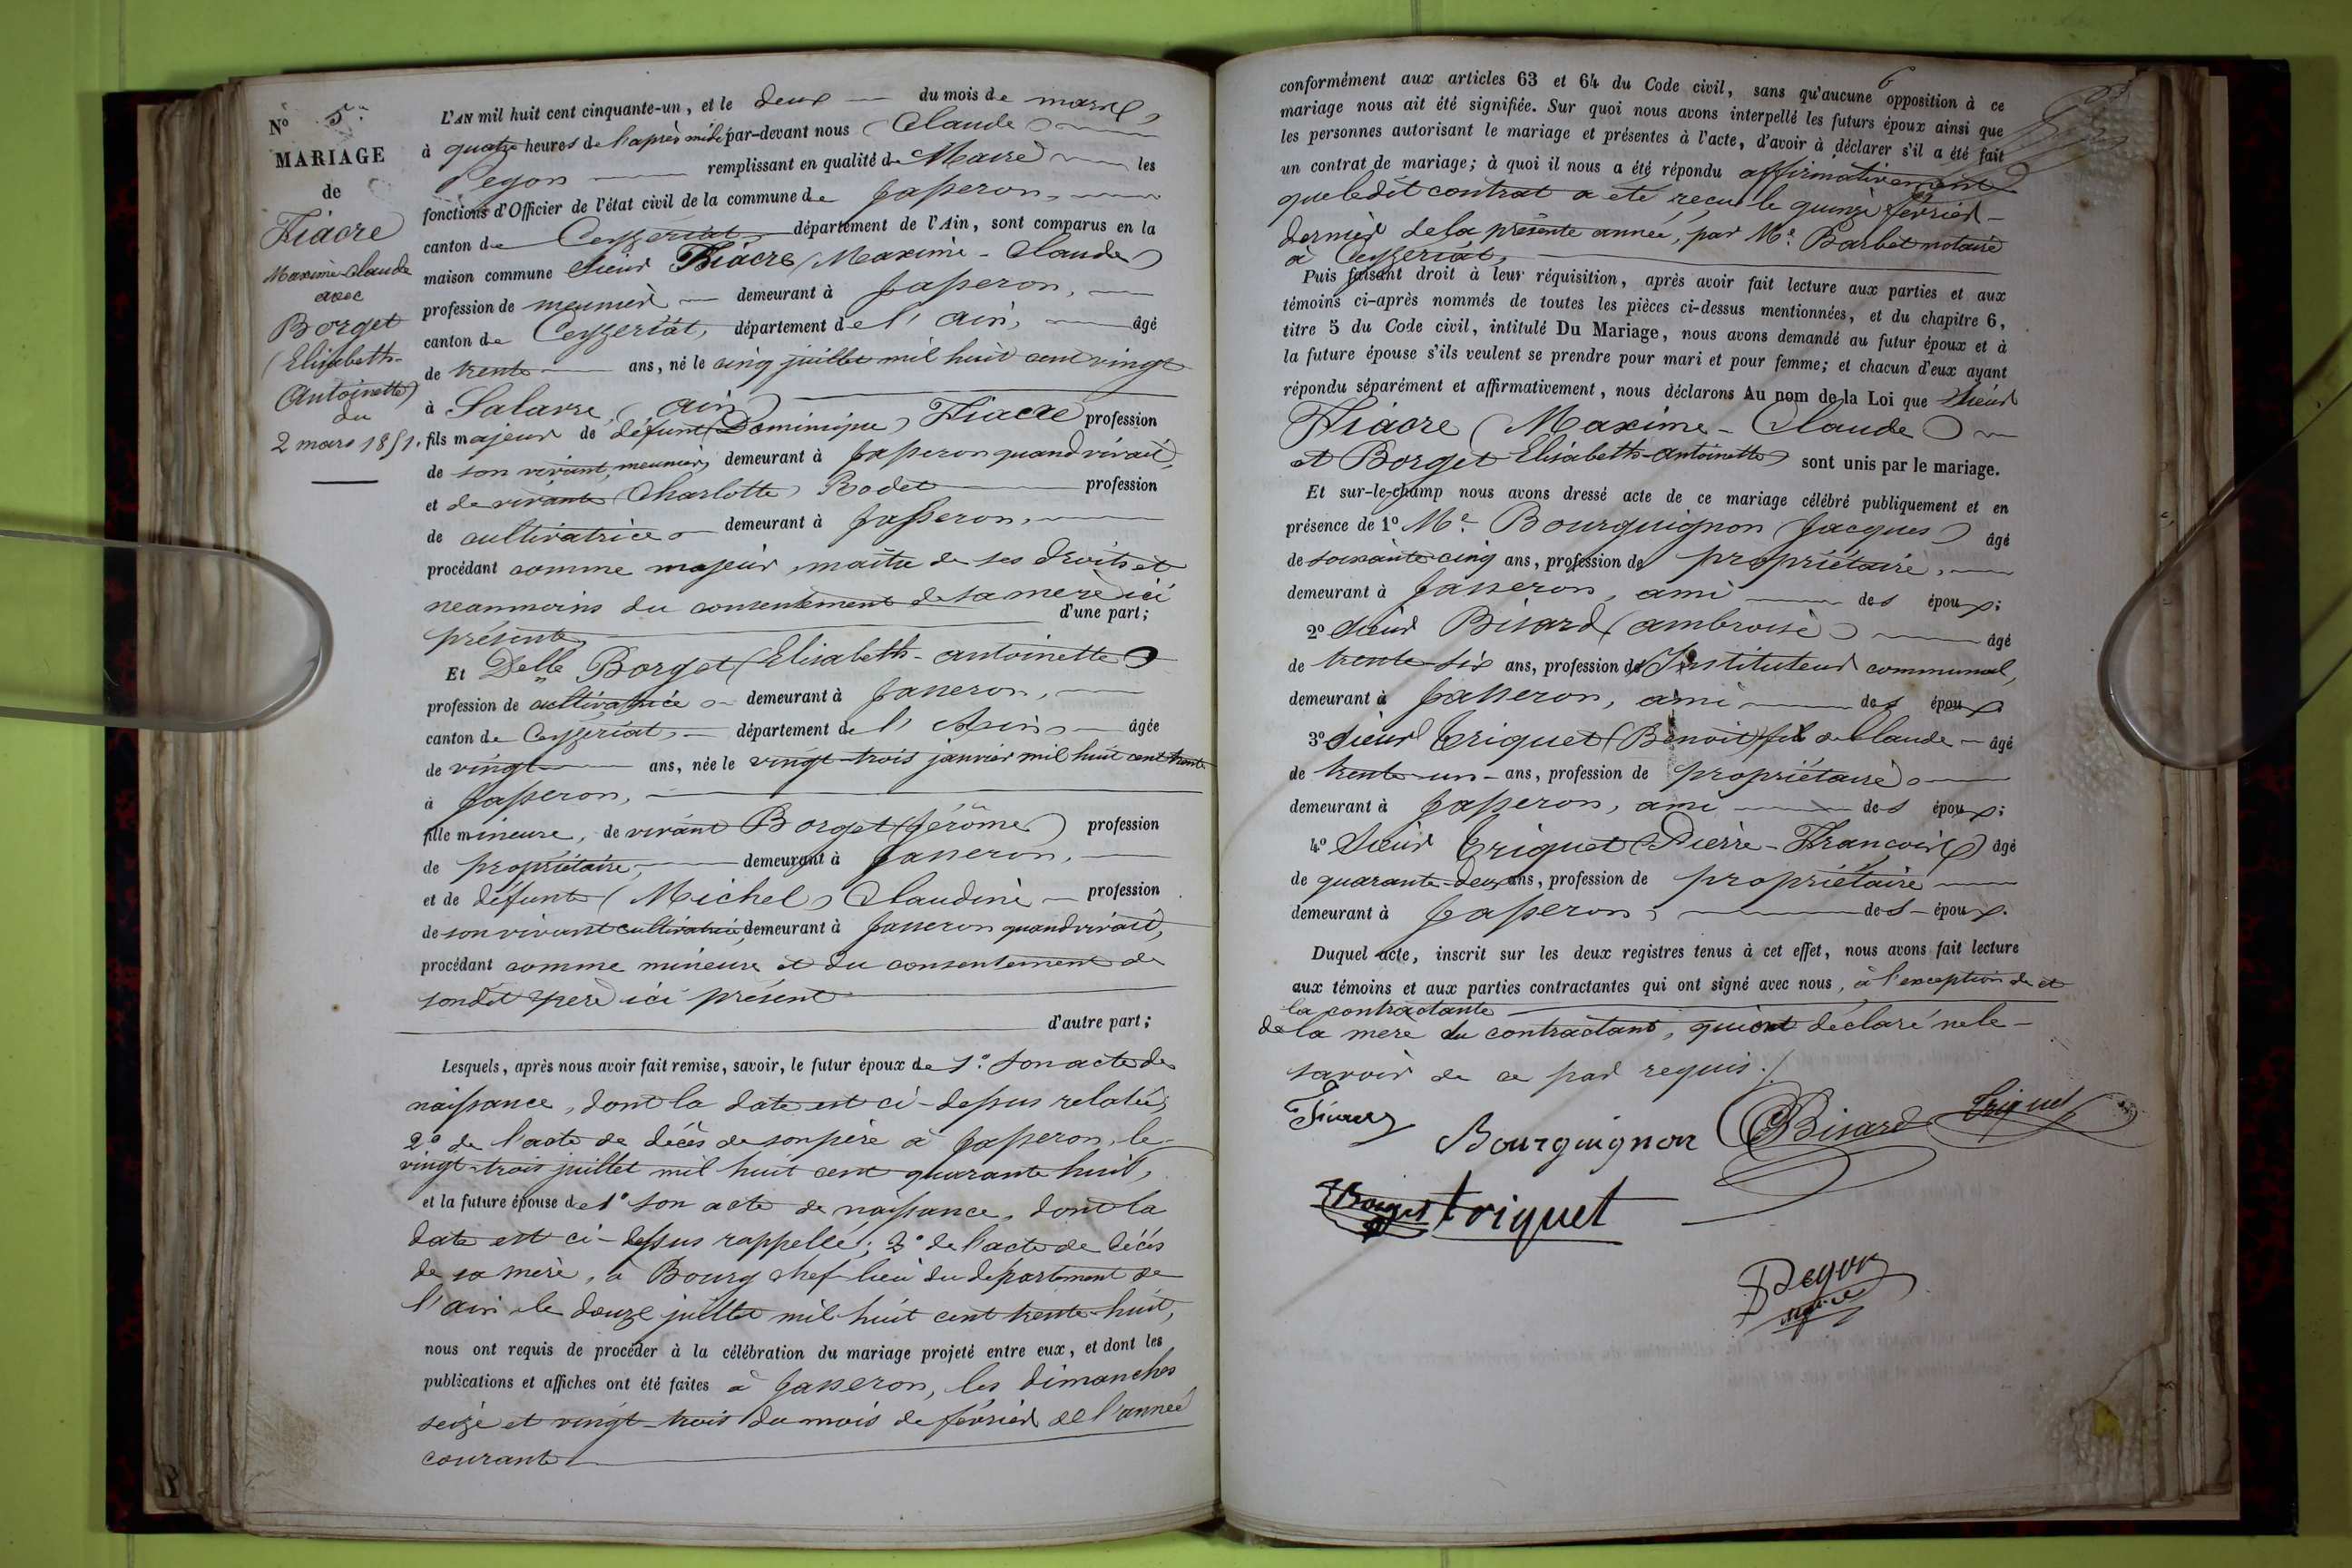 Nº 5.
MARIAGE
de
Fiacre
Maxime-Claude
avec
Borget
(Elisabeth-
Antoinette)
du
2 mars 1851.
L'AN mil huit cent cinquante-un, et le deux du mois de mars,
à quatre heures de l'après midi par-devant nous Claude
Pegon remplissant en qualité de Maire les
fonctions d'Officier de l'état civil de la commune de Jasseron,
canton de Ceyzeriat, département de l'Ain, sont comparus en la
maison commune Sieur Fiacre (Maxime-Claude)
profession de meunier demeurant à Jasseron,
canton de Ceyzeriat, département de l'Ain, âgé
de trente ans, né le cinq juillet mil huit cent vingt
à Salavre, (Ain)
fils majeur de défunt (Dominique) Fiacre profession
de son vivant, meunier, demeurant à Jasseron quand vivait,
et de vivante (Charlotte) Rodet profession
de cultivatrice demeurant à Jasseron,
procédant comme majeur, maître de ses droits et
neanmoins du consentement de sa mere ici
présente d'une part;
Et Delle Borget (Elisabeth-Antoinette)
profession de cultivatrice demeurant à Jasseron,
canton de Ceyzeriat, département de l'Ain âgée
de vingt ans, née le vingt-trois janvier mil huit cent trente
à Jasseron,
fille mineure, de vivant Borget (Jérôme) profession
de propriétaire, demeurant à Jasseron,
et de défunte (Michel) Claudine profession
de son vivant cultivatrice, demeurant à Jasseron quand vivait,
procédant comme mineure et du consentement de
sondit pere ici présent
d'autre part;
Lesquels, après nous avoir fait remise, savoir, le futur époux de 1.° son acte de
naissance, dont la date est ci-dessus relatée;
2.° de l'acte de décès de son père à Jasseron, le
vingt-trois juillet mil huit cent quarante huit,
et la future épouse de 1° son acte de naissance, dont la
date est ci-dessus rappellée; 2° de l'acte de décés
de sa mere, à Bourg chef-lieu du departement de
l'Ain le douze juillet mil huit cent trente-huit,
nous ont requis de procéder à la célébration du mariage projeté entre eux, et dont les
publications et affiches ont été faites à Jasseron, les dimanches
seize et vingt-trois du mois de février de l'année
courante
6
conformément aux articles 63 et 64 du Code civil, sans qu'aucune opposition à ce
mariage nous ait été signifiée. Sur quoi nous avons interpellé les futurs époux ainsi que
les personnes autorisant le mariage et présentes à l'acte, d'avoir à déclarer s'il a été fait
un contrat de mariage; à quoi il nous a été répondu affirmativement
que ledit contrat a été reçu le quinze février
dernier de la présente année, par Me. Barbet notaire
à Ceyzeriat,
Puis faisant droit à leur réquisition, après avoir fait lecture aux parties et aux
témoins ci-après nommés de toutes les pièces ci-dessus mentionnées, et du chapitre 6,
titre 5 du Code civil, intitulé Du Mariage, nous avons demandé au futur époux et à
la future épouse s'ils veulent se prendre pour mari et pour femme; et chacun d'eux ayant
répondu séparément et affirmativement, nous déclarons Au nom de la Loi que Sieur
Fiacre (Maxime-Claude)
et Borget Elisabeth-Antoinette sont unis par le mariage.
Et sur-le-champ nous avons dressé acte de ce mariage célébré publiquement et en
présence de 1º Mr. Bourguignon (Jacques) âgé
de soixante cinq ans, profession de propriétaire,
demeurant à Jasseron, ami des époux;
2º Sieur Bisard (Ambroise) âgé
de trente-six ans, profession de Instituteur communal,
demeurant à Jasseron, ami des époux
3º Sieur Triquet (Benoit) fils de Claude âgé
de trente-un ans, profession de propriétaire
demeurant à Jasseron, ami des époux;
4º Sieur Triquet (Pierre-François) âgé
de quarante-deux ans, profession de propriétaire
demeurant à Jasseron, des époux.
Duquel acte, inscrit sur les deux registres tenus à cet effet, nous avons fait lecture
aux témoins et aux parties contractantes qui ont signé avec nous, à l'exception de et
la contractante
de la mere du contractant, qui ont déclaré ne le
savoir de ce par requis./.
Fiacre
Bourguignon
Bisard
Triquet
Borget
triquet
Pegon
maire